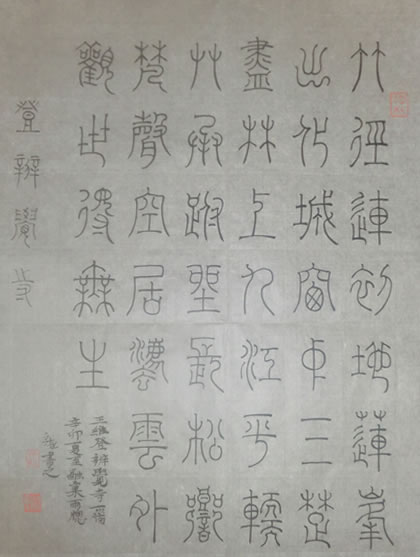 竹徑連初地蓮峯
出化城窗中三楚
盡林上九江平輭
艸承趺坐長松響
梵聲空居灋雲外
觀世得無生
登辨覺寺
王維登辨覺寺
辛卯夏